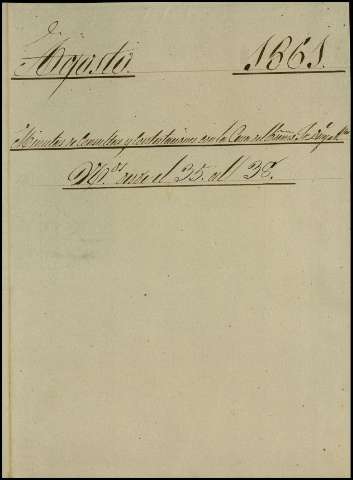 Agosto. 1861.
Minutas de Consultas y Contestaciones con la Casa del Exmo. Sr. Duque
Nos. desde el 35. al 38.